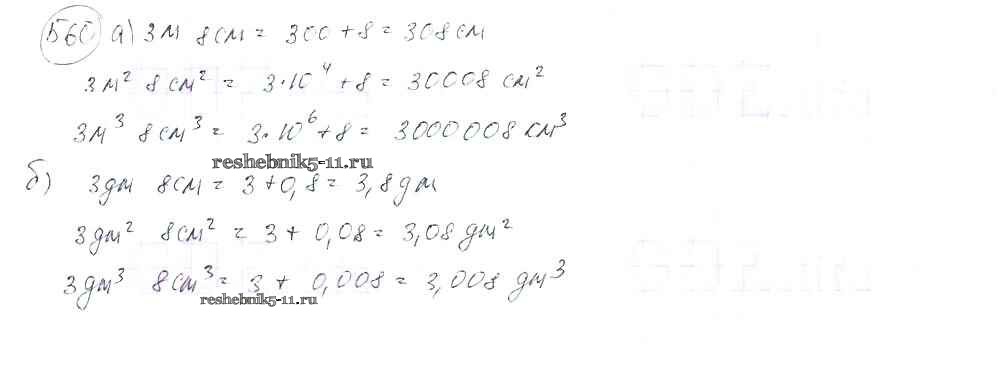 560 а) 3м 8см = 300 + 8 = 308 см
3м² 8см² = 3·10⁴ + 8 = 30008 см²
3м³ 8см³ = 3·10⁶ + 8 = 3000008 см³
reshebnik5-11.ru
б) 3дм 8см = 3 + 0,8 = 3,8 дм
3дм² 8см² = 3 + 0,08 = 3,08 дм²
3дм³ 8см³ = 3 + 0,008 = 3,008 дм³
reshebnik5-11.ru